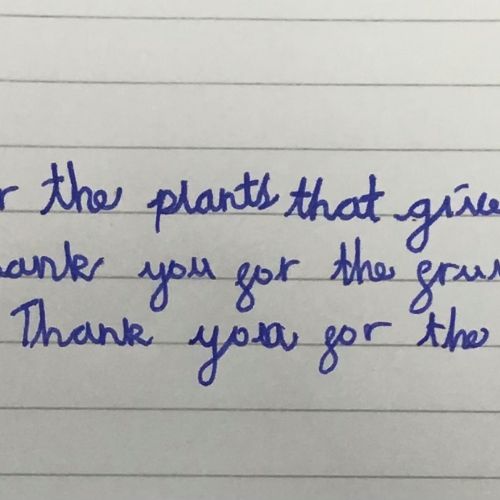 r the plants that give
hank you for the
Thank you for the